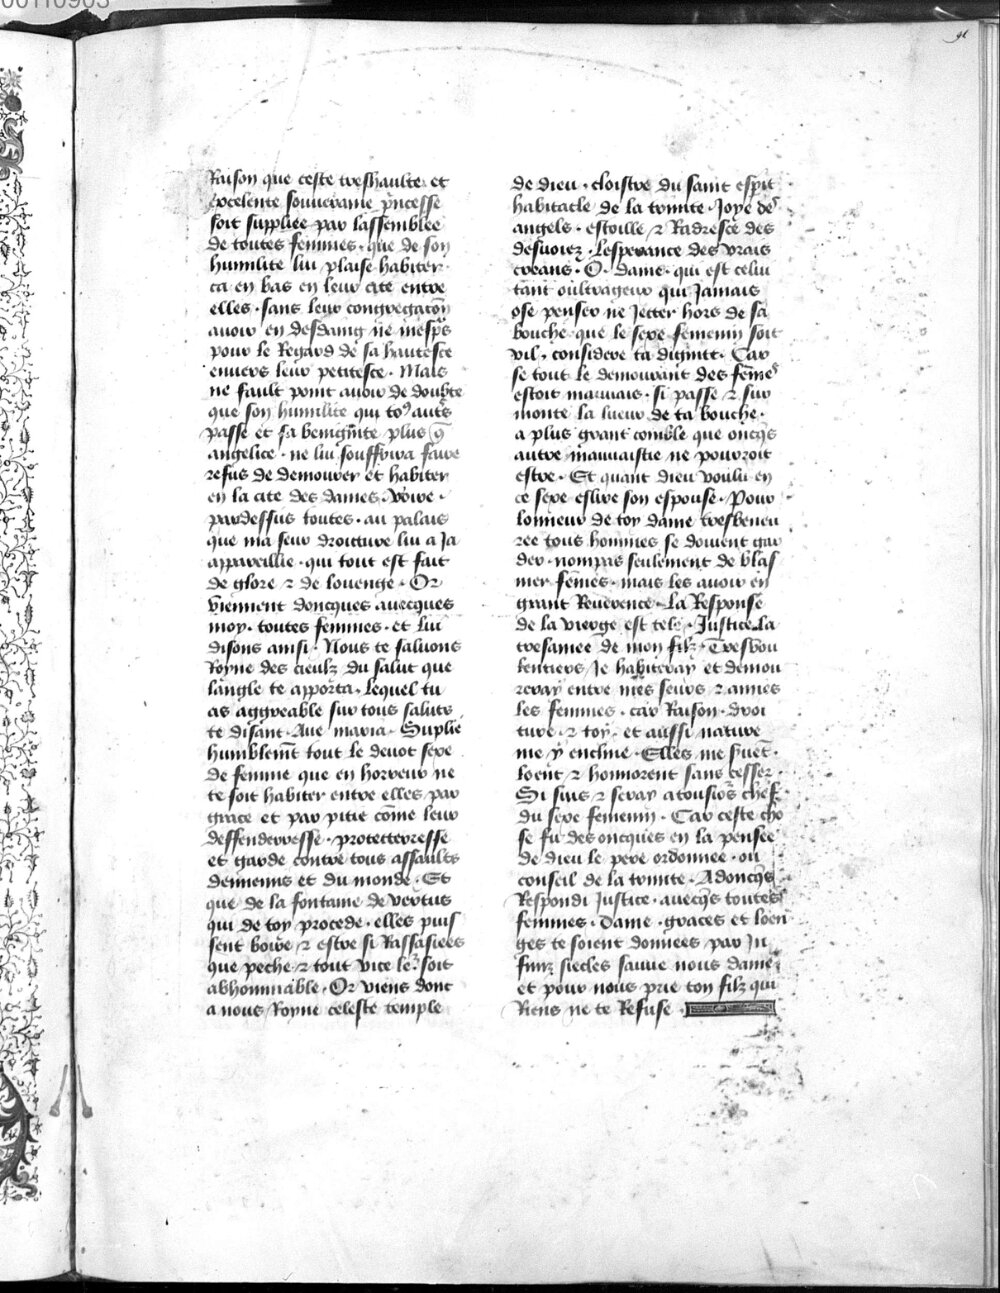 00110903
91
Raison que ceste treshaulte et
excelente souueraine p̃ncesse
soit suppliee par lassemblee
de toutes femmes · que de son
humilite lui plaise habiter
ca en bas en leur cite entre
elles · sans leur congregacõn
auoir en desdaing ne mesp̃s
pour le Regard de sa haultesce
enuers leur petitesce · Mais
ne fault point auoir de doubte
que son humilite qui toꝰ autr̃s
passe et sa benignite plus q̃
angelice · ne lui souffrira faire
refus de demourer et habiter
en la cite des dames · Voire ·
pardessus toutes · au palais
que ma seur droitture lui a Ja
appareillie · qui tout est fait
de glore ⁊ de louenge · Or
viennent doncques auecques
moy · toutes femmes · et lui
disons ainsi · Nous te saluons
Royne des cieulz du salut que
langle te apporta · Lequel tu
as aggreable sur tous saluts
te disant · Aue maria · Suplie
humblem̃t tout le deuot sexe
de femme que en horreur ne
te soit habiter entre elles par
grace et par pitie cõme leur
deffenderresse · protetterresse
et garde contre tous assaults
dennemis et du monde · Et
que de la fontaine de vertus
qui de toy procede · elles puis
sent boire ⁊ estre si Rassasiees
que peche ⁊ tout vice le᷑ soit
abhominable · Or viens dont
a nous Royne celeste temple
de dieu · cloistre du saint esp̃it
habitacle de la trinite · Joye des
angels · estoille ⁊ Radresce des
desuoiez · Lesperance des vrais
creans · O · dame · qui est celui
tant oultrageux qui Jamais
ose penser ne Jetter hors de sa
bouche que le sexe femenin soit
vil · considere ta dignite · Car
se tout le demourant des fẽmes
estoit mauuais · si passe ⁊ sur
monte la lueur de ta bouche ·
a plus grant comble que oncq̃s
autre mauuaistie ne pourroit
estre · Et quant dieu voulu en
ce sexe eslire son espouse · Pour
lonneur de toy dame tresbeneu
ree tous hommes se doiuent gar
der · nompas seulement de blas
mer fẽmes · mais les auoir en
grant Reuerence · La Response
de la vierge est tele · Justice La
tresamee de mon filz · Tresvou
lentiers Je habiteray et demou
reray entre mes seurs ⁊ amies
les femmes · car Raison · droi
ture · ⁊ toy · et aussi nature
me y encline · Elles me s̃uẽt ·
loent ⁊ honnorent sans cesser ·
Si suis ⁊ seray a tousiours chef
du sexe femenin · Car ceste cho
se fu des oncques en la pensee
de dieu le pere ordonnee · ou
conseil de la trinite · Adoncq̃s
Respondi Justice · auecq̃s toutes
femmes · Dame · graces et loen
ges te soient donnees par In
finiz siecles sauue nous dame ·
et pour nous prie ton filz qui
Riens ne te Refuse ·